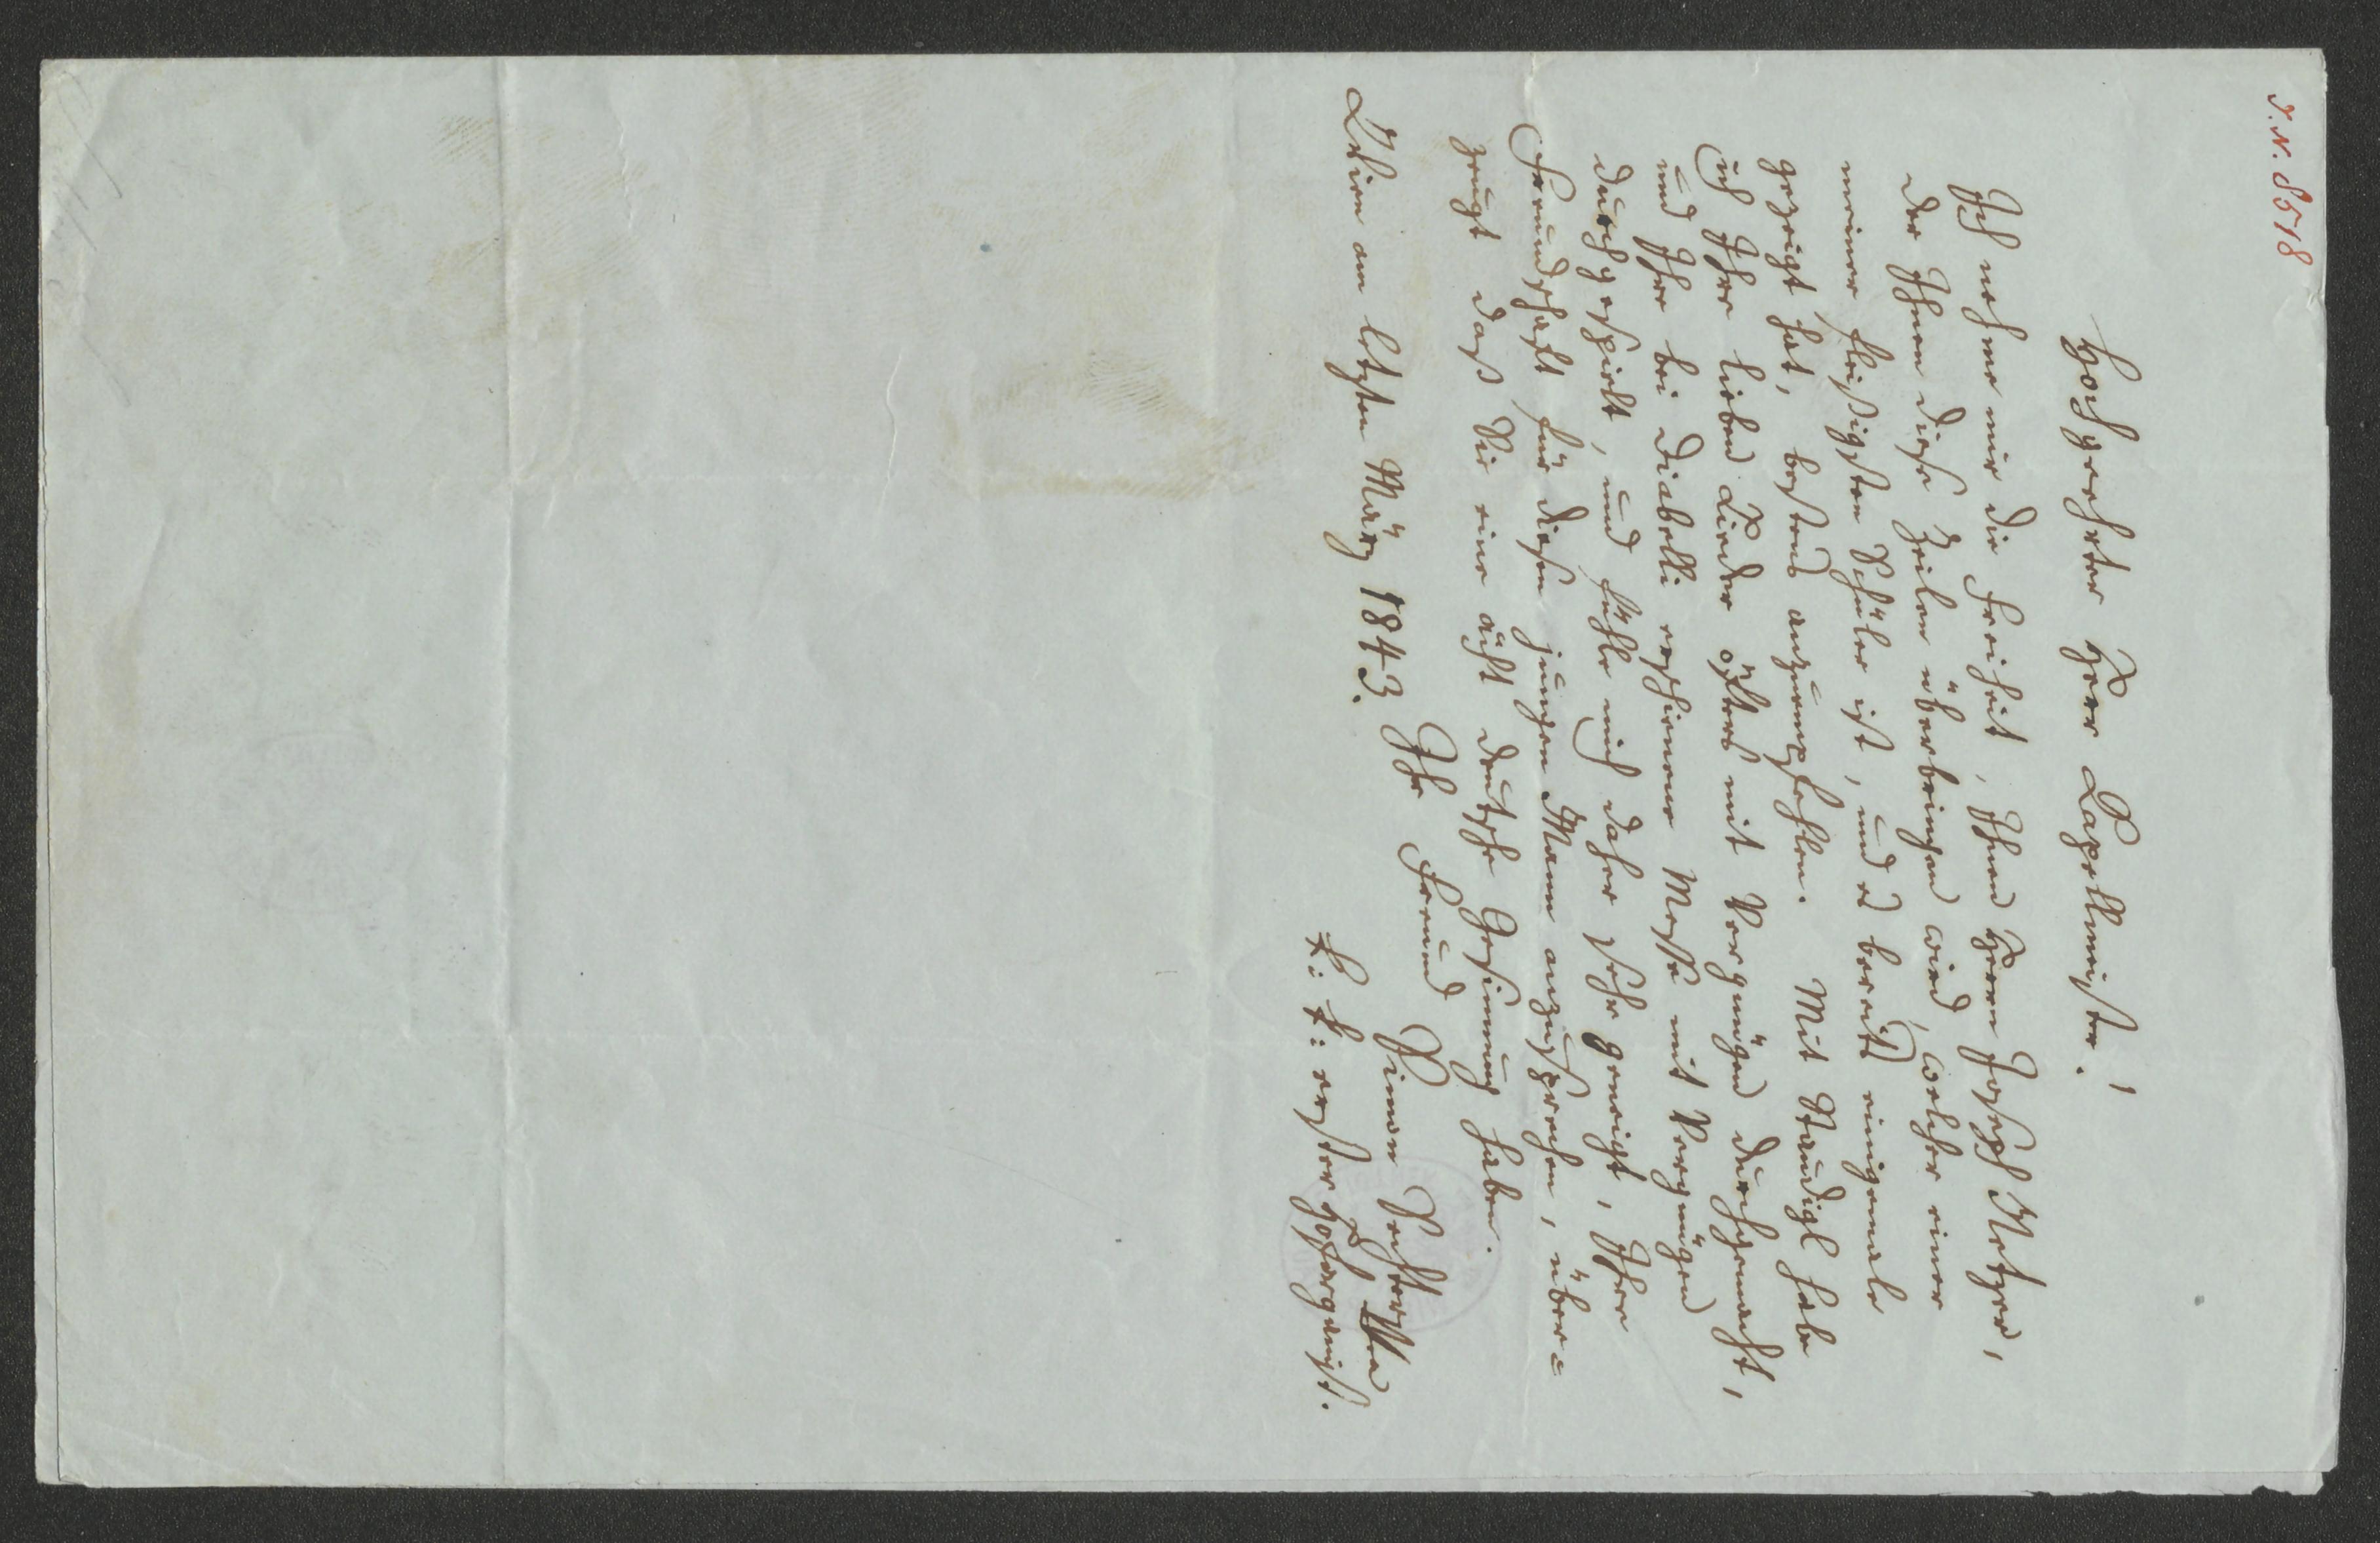 J.N. 8518
Hochgeehrter Herr Capellmeister!
Ich nehme mir die Freiheit, Ihnen Herrn Joseph Netzer,
der Ihnen diese Zeilen überbringen wird, welcher einer
meiner fleißigsten Schüler ist, und es bereits einigemale
gezeigt hat, bestens anzuempfehlen. Mit Staudigl habe
ich Ihre lieben Lieder öfters mit Vergnügen durchgemacht,
und Ihre bei Diabelli erschienene Messe mit Vergnügen
durchgespielt, und fühle mich daher sehr geneigt, Ihre
Freundschaft für diesen jungen Mann anzusprechen, über=
zeugt daß Sie eine ächt deutsche Gesinnung haben.
Ihr Freund Simon Sechter
Wien am letzten März 1843.
k: k: erster Hoforganist.